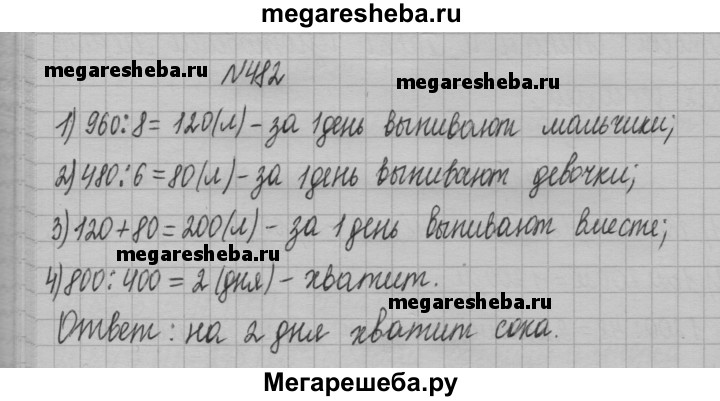 megaresheba.ru
megaresheba.ru
№482
megaresheba.ru
1) 960:8=120(л)-за 1день выпивают мальчики;
2) 480:6=80(л)-за 1день выпивают девочки;
3) 120+80=200(л)-за 1 день выпивают вместе;
megaresheba.ru
4) 800:400=2(дня)-хватит.
megaresheba.ru
Ответ: на 2 дня хватит сока.
Мегарешеба.ру